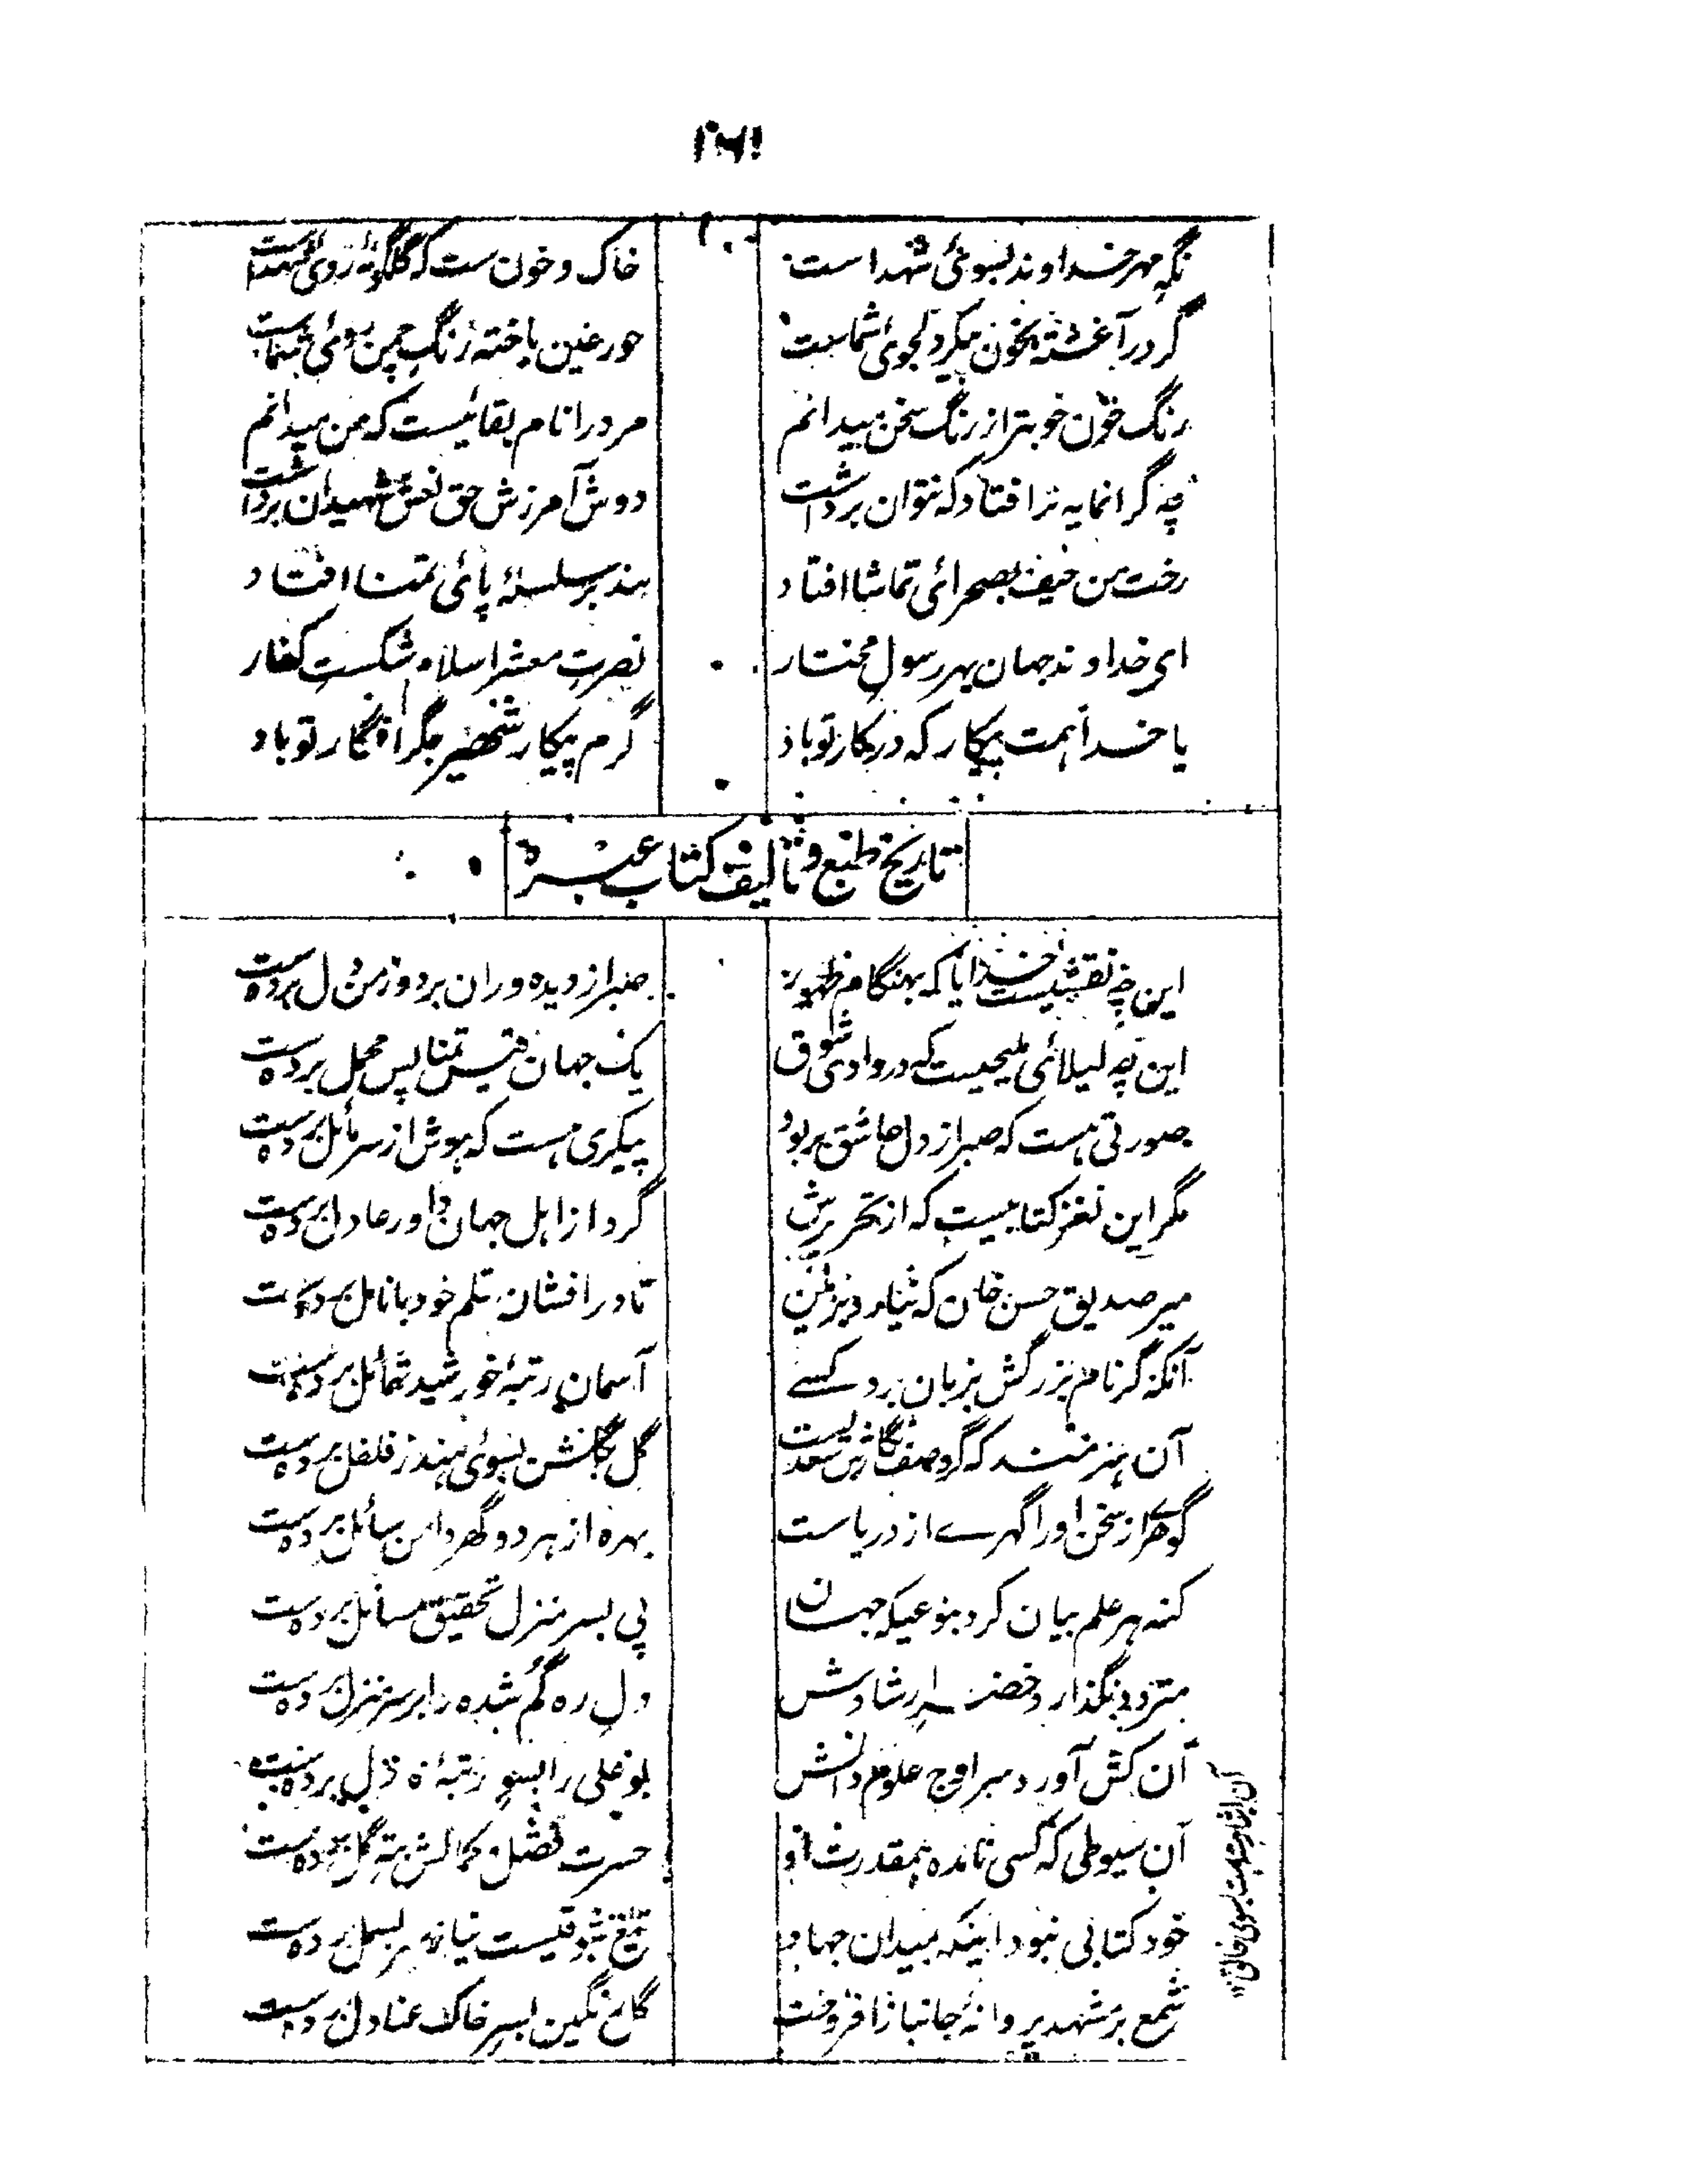 ۲۶۱
نگه مهر خداوند بسوئی شهدا ست خاک و خون ست که گلگونهٔ روی شهداست
گرد در آغشته بخون میکرد لجوئ شماست حور عین باخته رنگ چمن روئی شماست
رنگ خون خوبتر از رنگ سخن میدانم مرد را نام بقائیست که من میدانم
چه گرانمایه افتاد که نتوان برداشت دوش آمرزش حق نعش شهیدان برداشت
رخت من حیف بصحرائی تماشا افتاد بند بر سلسلهٔ پائی تمنا افتاد
ای خداوند جهان بهر رسول مختار نصرت معشر اسلام شکست کفار
یا خدا همت پیکار که در کار تو باد گرم پیکار شخصیر جگر افگار تو باد
تاریخ طبع و تالیف کتاب عبره
این چه نقشیست خدایا که بهنگام ظهور صبر از دیده وران برد و ز من دل بردست
این چه لیلائی ملیحیست که در وادی شوق یک جهان قیس تمنا پس محمل بردست
صورتی هست که صبر از دل عاشق بربود پیکری هست که هوش از سر مائل بردست
مگر این نغز کتابیست که از تحریرش گرد از اهل جهان داور عادل بردست
میر صدیق حسن خان که تا در افشان قلم خود بانامل بردست
آنکه گر نام بزرگش بزبان برد کسے آسمان رتبهٔ خورشید شمائل بردست
آن هنرمند که گر وصف نگارش گل بگلشن بسوی هند ز فلفل بردست
گوهرے از سخن او را گهرے از دریاست بهره از هر دو گهر دامن سائل بردست
کنه هر علم بیان کرد بنوعیکه جهان پی بسر منزل تحقیق مسائل بردست
متردد نگذارد خضر ارشادش دل ره گم شده را بر سر منزل بردست
آن کش آورد سر اوج علوم دانش بوعلی را بسو رتبهٔ بردست
آن سیوطی که کسی نامده همقدرت او حسرت فضل و کمالش ته گل بردست
خود کتابی نبود اینکه بمیدان جهاد تیغ شوقیست بسمل بردست
شمع بر مشهد پروانهٔ جانباز افروخت گل رنگین بسر خاک عنادل بردست